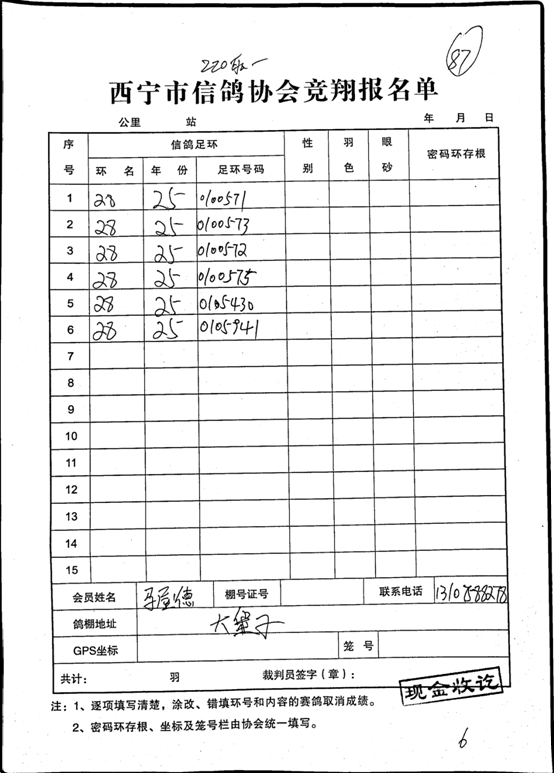 220 段一
87
西宁市信鸽协会竞翔报名单
公里 站 年 月 日
序号 信鸽足环 性别 羽色 眼砂 密码环存根
环名 年份 足环号码
1 28 25 0100571
2 28 25 0100573
3 28 25 0100572
4 28 25 0100575
5 28 25 0105430
6 28 25 0105941
7
8
9
10
11
12
13
14
15
会员姓名 德 棚号证号 联系电话
鸽棚地址 大
GPS坐标 笼号
共计: 羽 裁判员签字(章):
现金收讫
注:1、逐项填写清楚,涂改、错填环号和内容的赛鸽取消成绩。
2、密码环存根、坐标及笼号栏由协会统一填写。
6